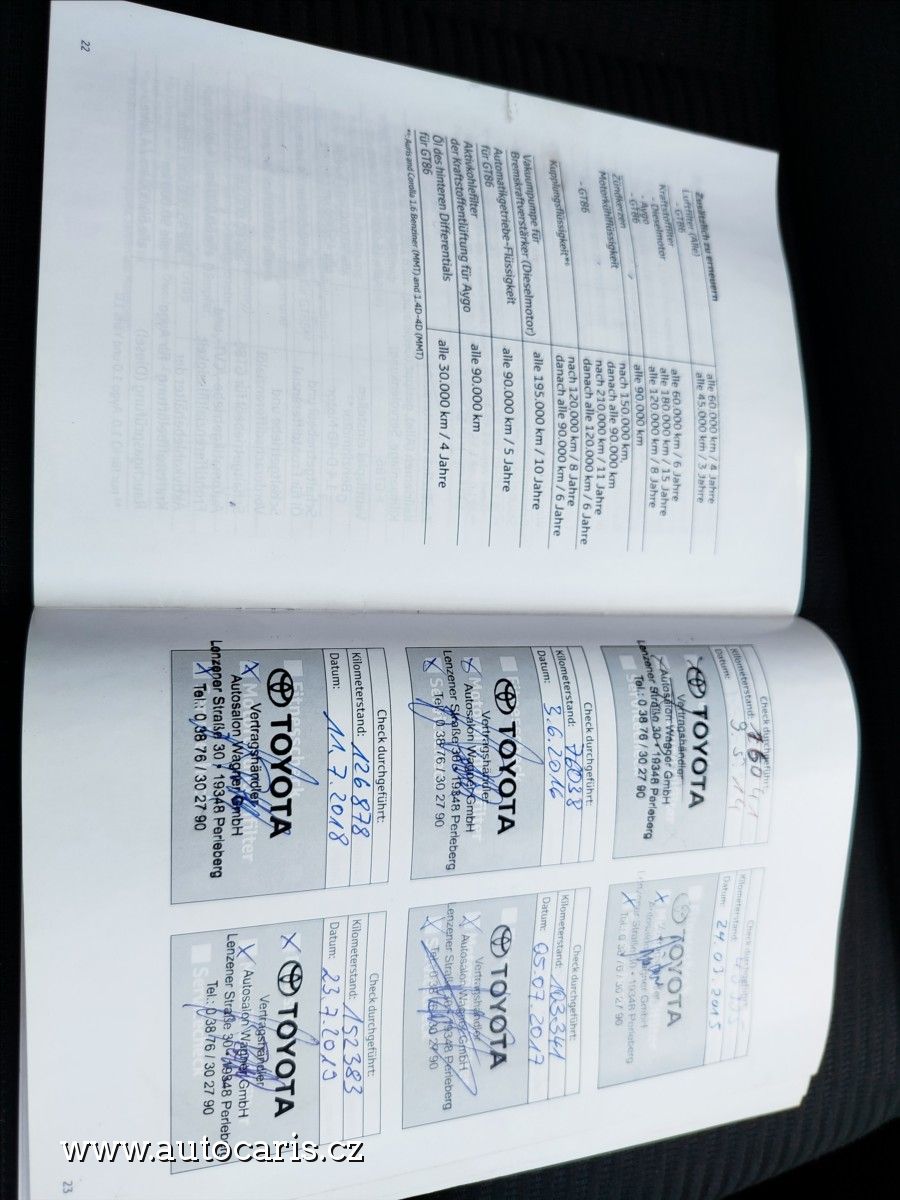 22
Zusätzlich zu erneuern
Luftfilter (Alle) alle 60.000 km / 4 Jahre
- GT86 alle 45.000 km / 3 Jahre
Kraftstofffilter
- Dieselmotor alle 60.000 km / 6 Jahre
- Aygo alle 180.000 km / 15 Jahre
- GT86 alle 120.000 km / 8 Jahre
Zündkerzen alle 90.000 km
Motorkühlflüssigkeit nach 150.000 km,
danach alle 90.000 km
- GT86 nach 210.000 km / 11 Jahre
danach alle 120.000 km / 6 Jahre
Kupplungsflüssigkeit*⁶ nach 120.000 km / 8 Jahre
danach alle 90.000 km / 6 Jahre
Vakuumpumpe für
Bremskraftverstärker (Dieselmotor) alle 195.000 km / 10 Jahre
Automatikgetriebe-Flüssigkeit
für GT86 alle 90.000 km / 5 Jahre
Aktivkohlefilter
der Kraftstoffentlüftung für Aygo alle 90.000 km
Öl des hinteren Differentials
für GT86 alle 30.000 km / 4 Jahre
Auris and Corolla 1.6 Benziner (MMT) and 1.4D-4D (MMT)
Check durchgeführt:
Kilometerstand: 16041
Datum: 9.5.14
TOYOTA
Vertragshändler
Autosalon Wagner GmbH
Lenzener Straße 30 • 19348 Perleberg
Tel.: 0 38 76 / 30 27 90
Check durchgeführt:
Kilometerstand:
Datum: 24.03.2015
TOYOTA
Lenzener Straße 30 • 19348 Perleberg
Tel.: 0 38 76 / 30 27 90
Check durchgeführt:
Kilometerstand: 76038
Datum: 3.6.2016
TOYOTA
Vertragshändler
Autosalon Wagner GmbH
Lenzener Straße 30 • 19348 Perleberg
Tel.: 0 38 76 / 30 27 90
Check durchgeführt:
Kilometerstand: 103341
Datum: 05.07.2017
TOYOTA
Vertragshändler
Autosalon Wagner GmbH
Lenzener Straße 30 • 19348 Perleberg
Tel.: 0 38 76 / 30 27 90
Check durchgeführt:
Kilometerstand: 126878
Datum: 11.7.2018
TOYOTA
Vertragshändler
Autosalon Wagner GmbH
Lenzener Straße 30 • 19348 Perleberg
Tel.: 0 38 76 / 30 27 90
Check durchgeführt:
Kilometerstand: 152383
Datum: 23.7.2019
TOYOTA
Vertragshändler
Autosalon Wagner GmbH
Lenzener Straße 30 • 19348 Perleberg
Tel.: 0 38 76 / 30 27 90
23
www.autocaris.cz